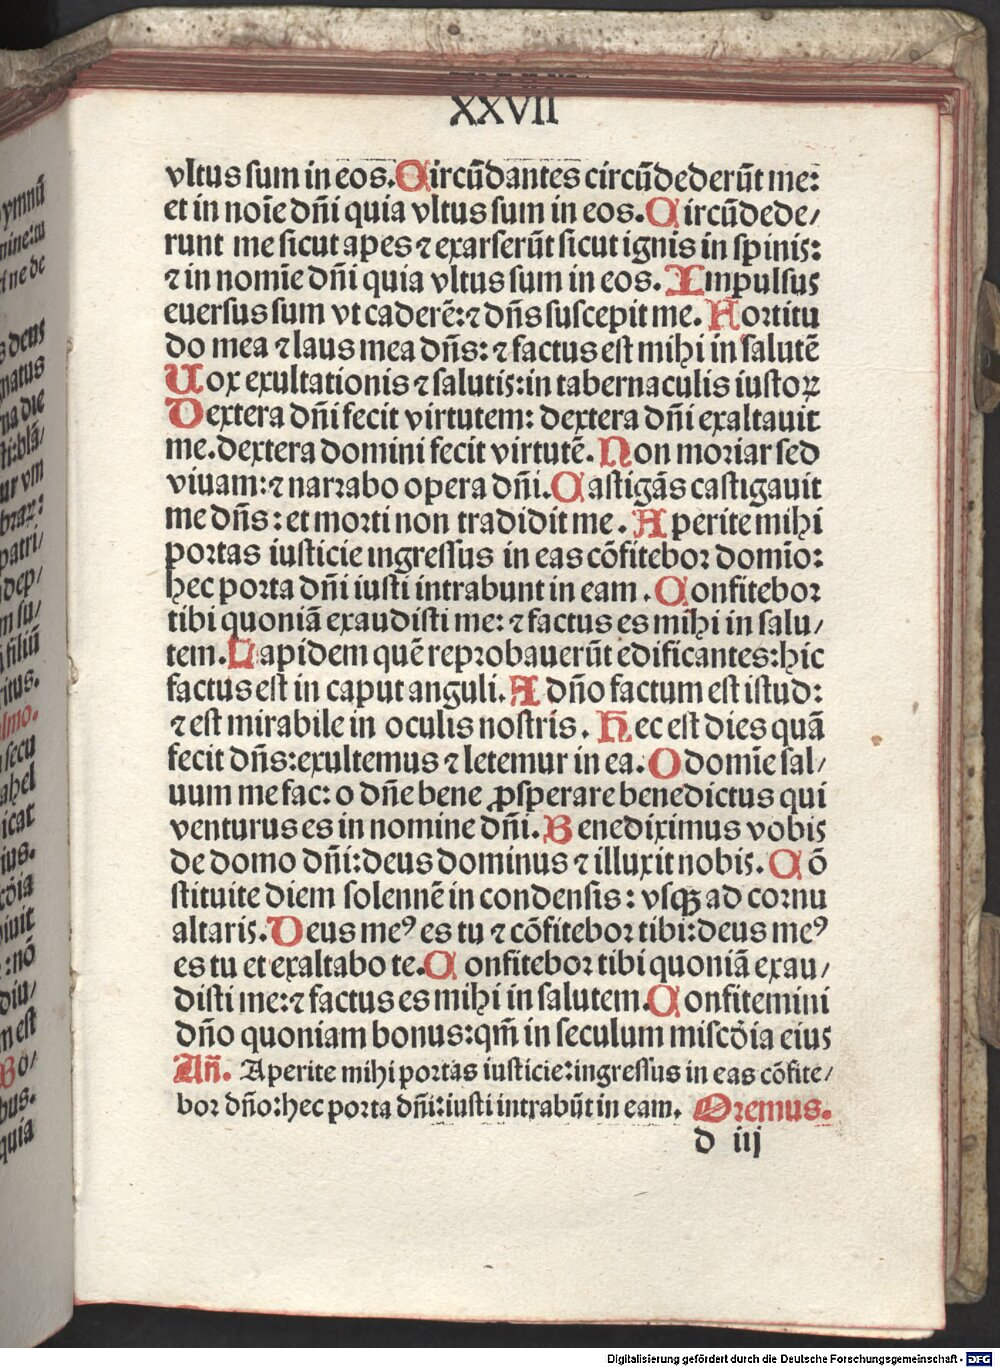 XXVII
vltus sum in eos. Circūdantes circūdederūt me:
et in noīe dñi quia vltus sum in eos. Circūdede/
runt me sicut apes ⁊ exarserūt sicut ignis in spinis:
⁊ in nomīe dñi quia vltus sum in eos. Impulsus
euersus sum vt caderē: ⁊ dñs suscepit me. Fortitu
do mea ⁊ laus mea dñs: ⁊ factus est mihi in salutē
Uox exultationis ⁊ salutis: in tabernaculis iustoꝝ
Dextera dñi fecit virtutem: dextera dñi exaltauit
me. dextera domini fecit virtutē. Non moriar sed
viuam: ⁊ narrabo opera dñi. Castigās castigauit
me dñs: et morti non tradidit me. Aperite mihi
portas iusticie ingressus in eas cōfitebor domīo:
hec porta dñi iusti intrabunt in eam. Confitebor
tibi quoniā exaudisti me: ⁊ factus es mihi in salu/
tem. Lapidem quē reprobauerūt edificantes: hic
factus est in caput anguli. A dño factum est istud:
⁊ est mirabile in oculis nostris. Hec est dies quā
fecit dñs: exultemus ⁊ letemur in ea. O domīe sal/
uum me fac: o dñe bene ꝓsperare benedictus qui
venturus es in nomine dñi. Benediximus vobis
de domo dñi: deus dominus ⁊ illuxit nobis. Cō
stituite diem solennē in condensis: vsqꝫ ad cornu
altaris. Deus meꝰ es tu ⁊ cōfitebor tibi: deus meꝰ
es tu et exaltabo te. Confitebor tibi quoniā exau/
disti me: ⁊ factus es mihi in salutem. Confitemini
dño quoniam bonus: qm̄ in seculum miscōia eius
Añ. Aperite mihi portas iusticie: ingressus in eas cōfite/
bor dño: hec porta dñi: iusti intrabūt in eam. Oremus.
d iij
Digitalisierung gefördert durch die Deutsche Forschungsgemeinschaft - DFG